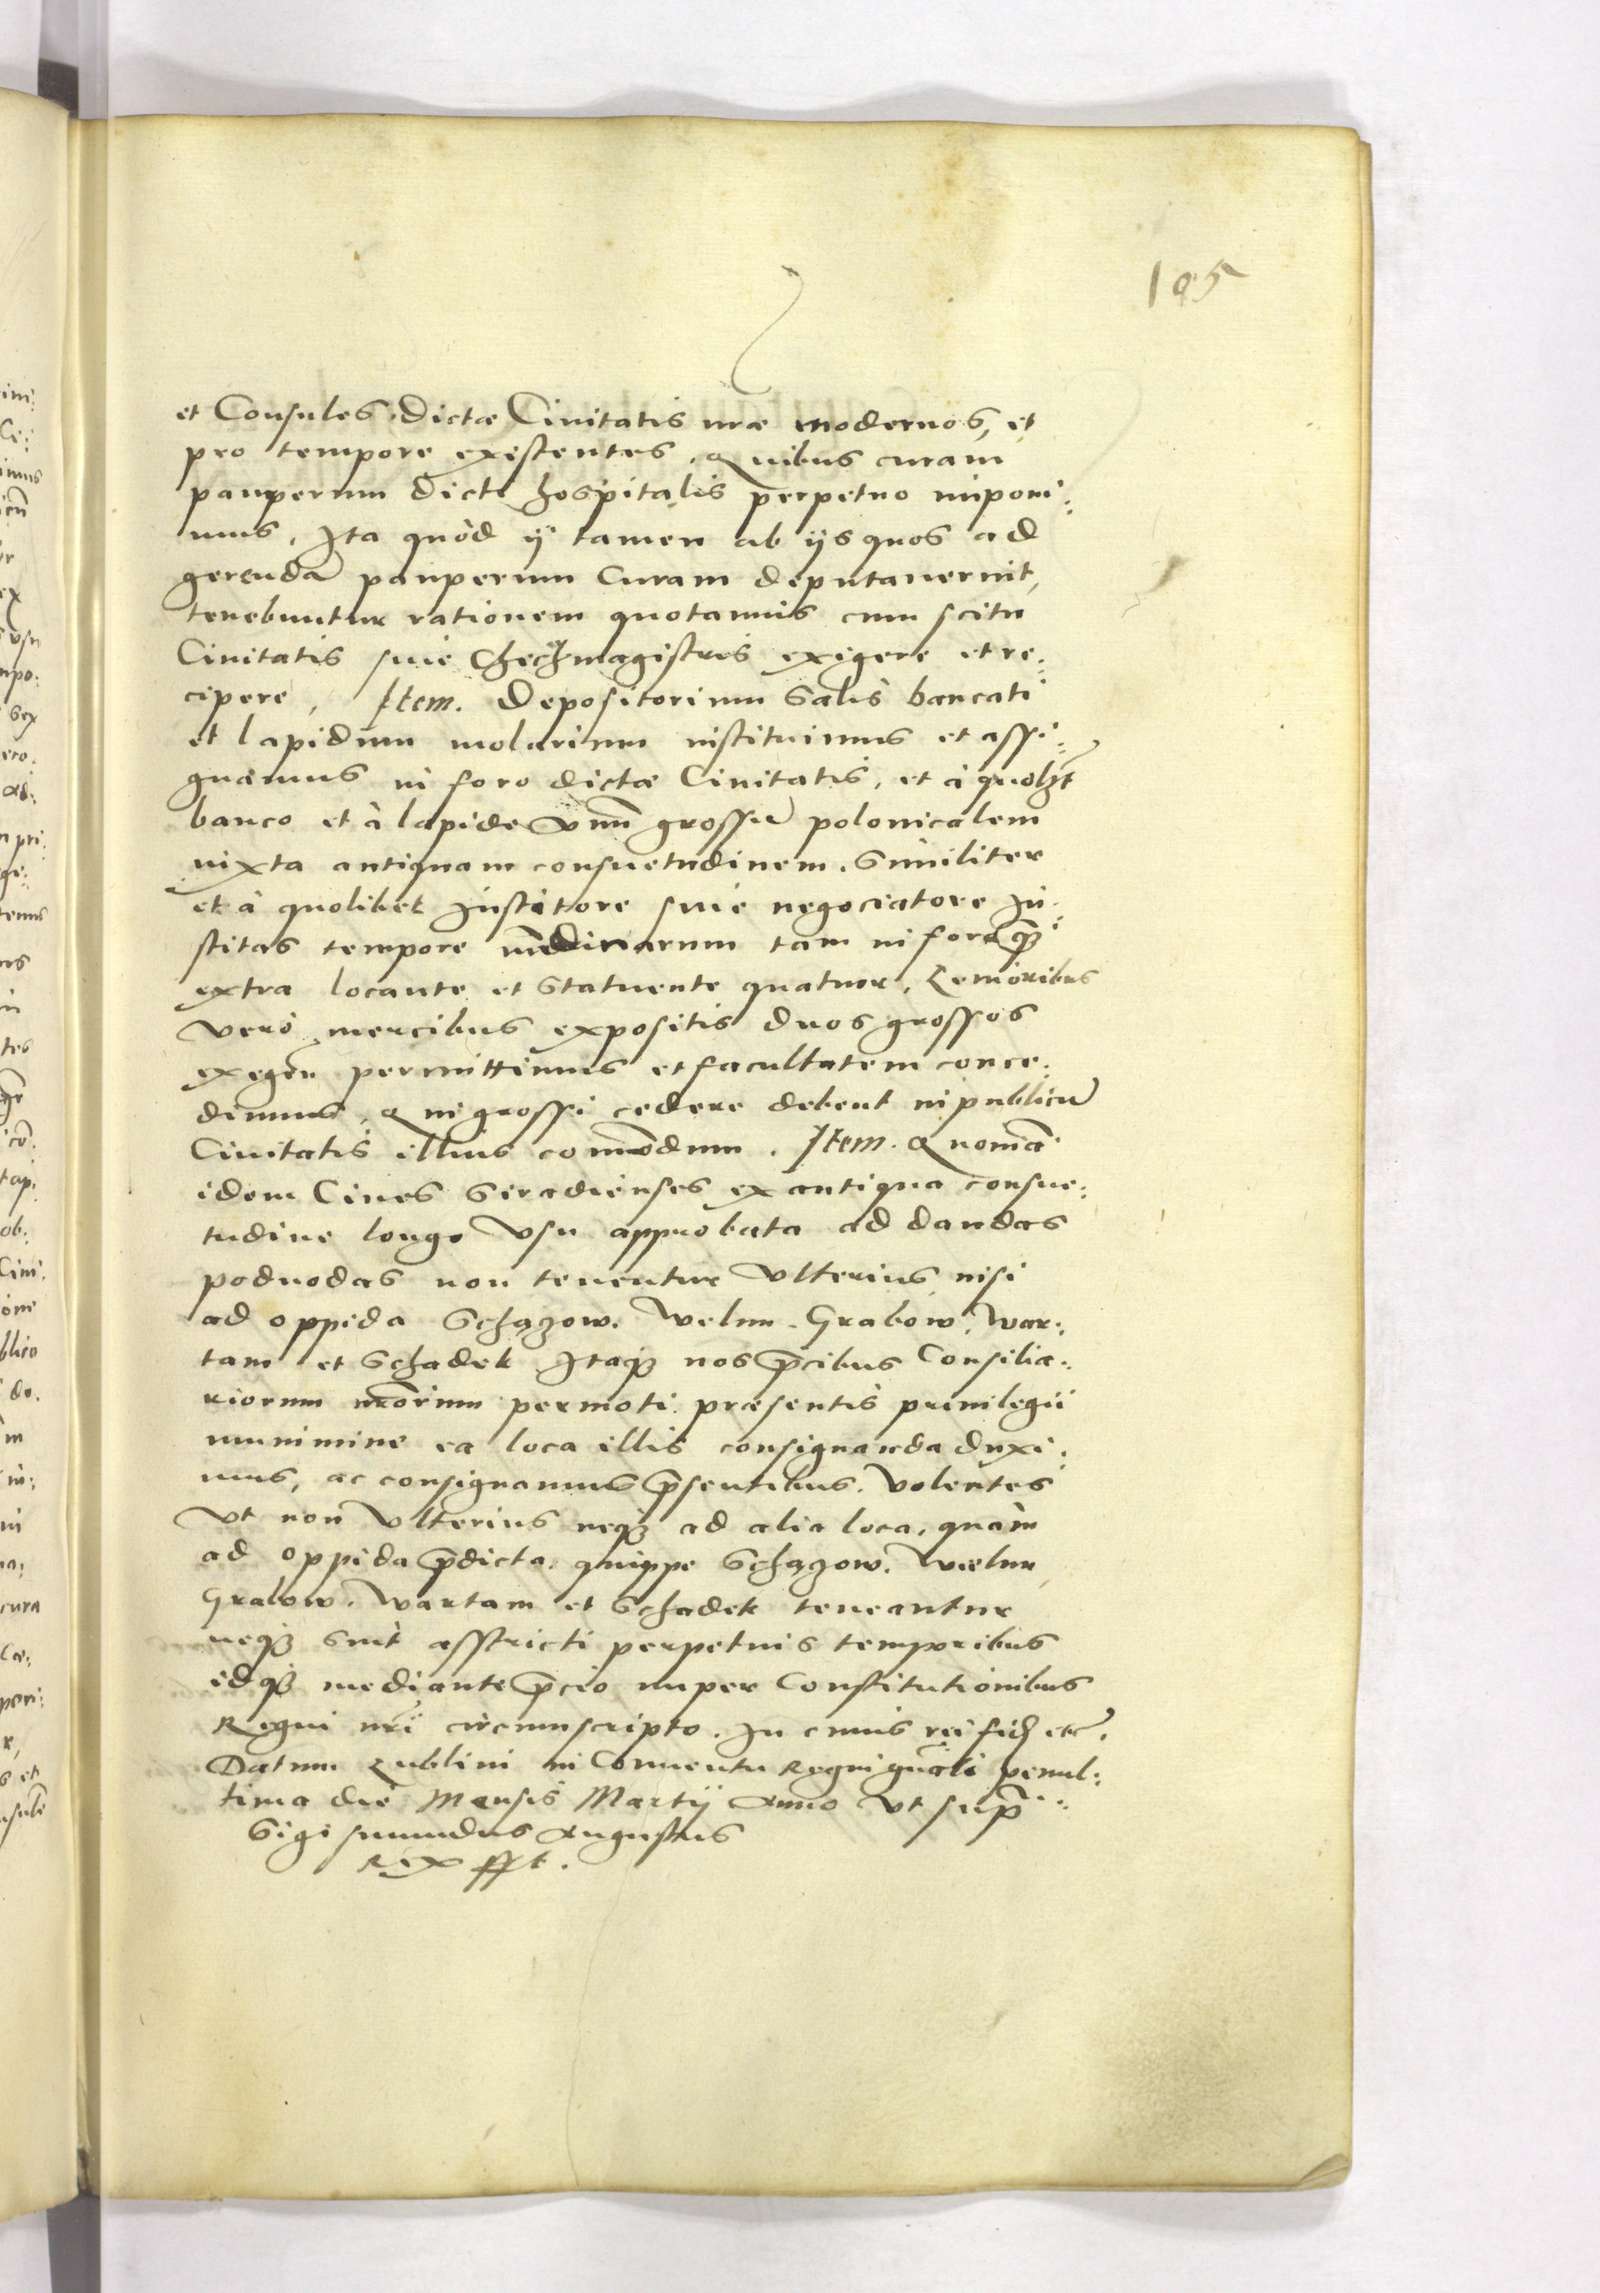 105
et Consules dictæ Ciuitatis nræ modernos, et
pro tempore existentes, Quibus curam
pauperum dicti hospitalis perpetuo imponi:
mus, Ita quòd ij tamen ab ijs quos ad
gerendã pauperum curam deputauerint,
tenebuntur rationem quotannis cum scitu
Ciuitatis siue Chechmagistris exigere et re:
cipere, Item. Depositorium salis bancati
et lapidum molarium instituimus et assi:
gnamus in foro dictæ Ciuitatis, et à quolzt
banco et à lapide vnũ grossũ polonicalem
iuxta antiquam consuetudinem. Similiter
et à quolibet Institore siue negociatore In:
stitas tempore nũdinarum tam in foro q̃z
extra locante et statuente quatuor, Leuioribus
verò mercibus expositis duos grossos
exigẽn permittimus et facultatem conce:
dimus, Qui grossi cedere debent in publicũ
Ciuitatis illius com̃odum. Item. Quoniã
idem Ciues Siradienses ex antiqua consue:
tudine longo vsu approbata ad dandas
poduodas non tenentur vlterius nisi
ad oppida Schazow. Velun. Grabow. War:
tam et Schadek Itaqz nos p̃cibus Consilia:
riorum nrõrum permoti præsentis priuilegii
munimine ea loca illis consignanda duxi:
mus, ac consignamus p̃sentibus. Volentes
vt non vlterius neqz ad alia loca, quàm
ad oppida p̃dicta, quippe Schazow. Velun,
Grabow. Wartam et Schadek teneantur
neqz sint asstricti perpetuis temporibus
idqz mediante p̃cio nuper Constitutionibus
Regni nrĩ circumscripto. In cuius rei fidẽ etc.
Datum Lublini in Conuentu Regni gnãli penul:
tima die Mensis Martij Anno vt sup̃
Sigismundus Augustus
Rex sst.